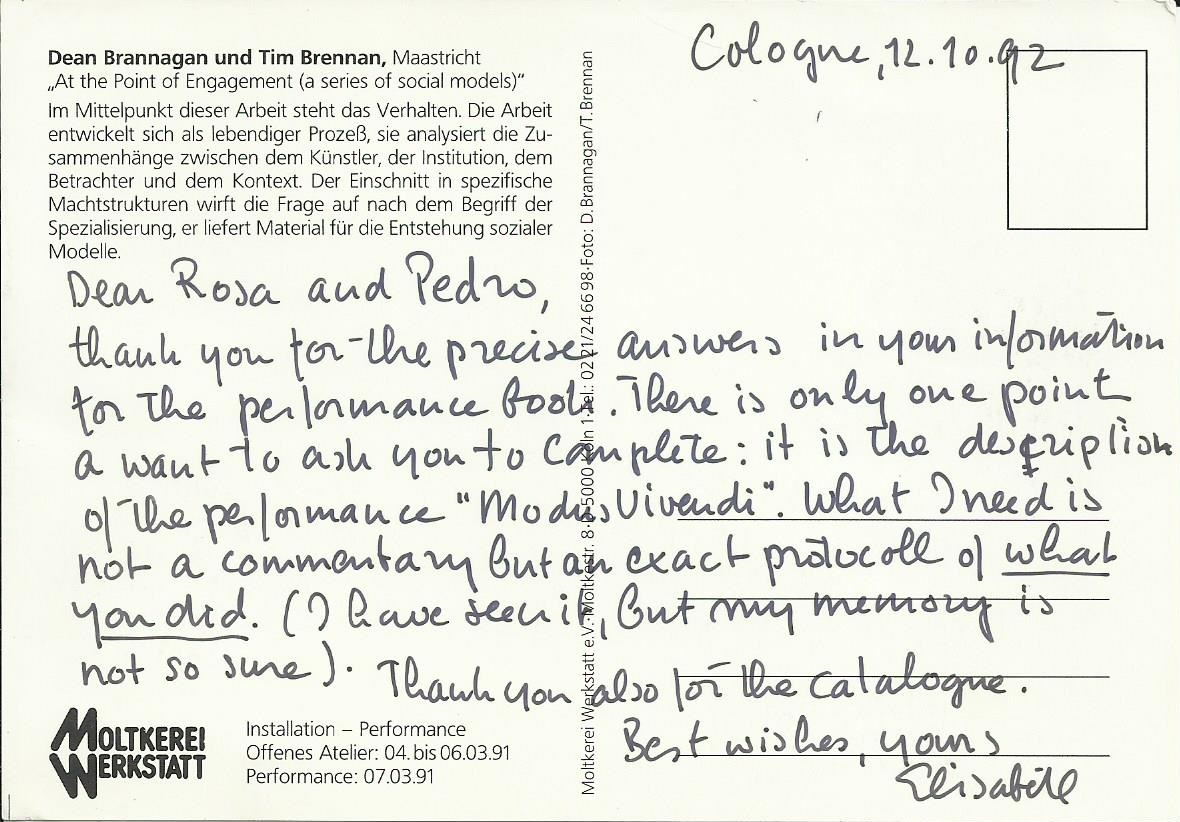 Dean Brannagan und Tim Brennan, Maastricht
„At the Point of Engagement (a series of social models)“
Im Mittelpunkt dieser Arbeit steht das Verhalten. Die Arbeit
entwickelt sich als lebendiger Prozeß, sie analysiert die Zu-
sammenhänge zwischen dem Künstler, der Institution, dem
Betrachter und dem Kontext. Der Einschnitt in spezifische
Machtstrukturen wirft die Frage auf nach dem Begriff der
Spezialisierung, er liefert Material für die Entstehung sozialer
Modelle.
Cologne, 12.10.92
Dear Rosa and Pedro,
thank you for the precise answers in your information
for the performance book. There is only one point
a want to ask you to complete: it is the description
of the performance "Modus Vivendi". What I need is
not a commentary but an exact protocoll of what
you did. (I have seen it, but my memory is
not so sure). Thank you also for the catalogue.
Best wishes, yours
Elisabeth
MOLTKEREI
WERKSTATT
Installation – Performance
Offenes Atelier: 04. bis 06.03.91
Performance: 07.03.91
Moltkerei Werkstatt e.V.·Moltkestr. 8·D-5000 Köln 1·Tel.: 02 21/24 66 98·Foto: D. Brannagan/T. Brennan